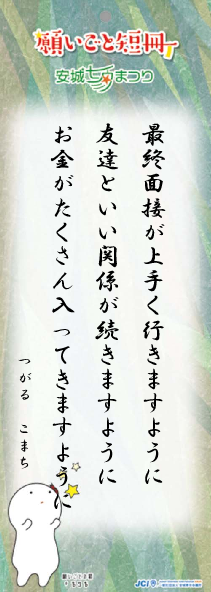 願いごと短冊
安城七夕まつり
最終面接が上手く行きますように
友達といい関係が続きますように
お金がたくさん入ってきますように
つがる こまち
JCI